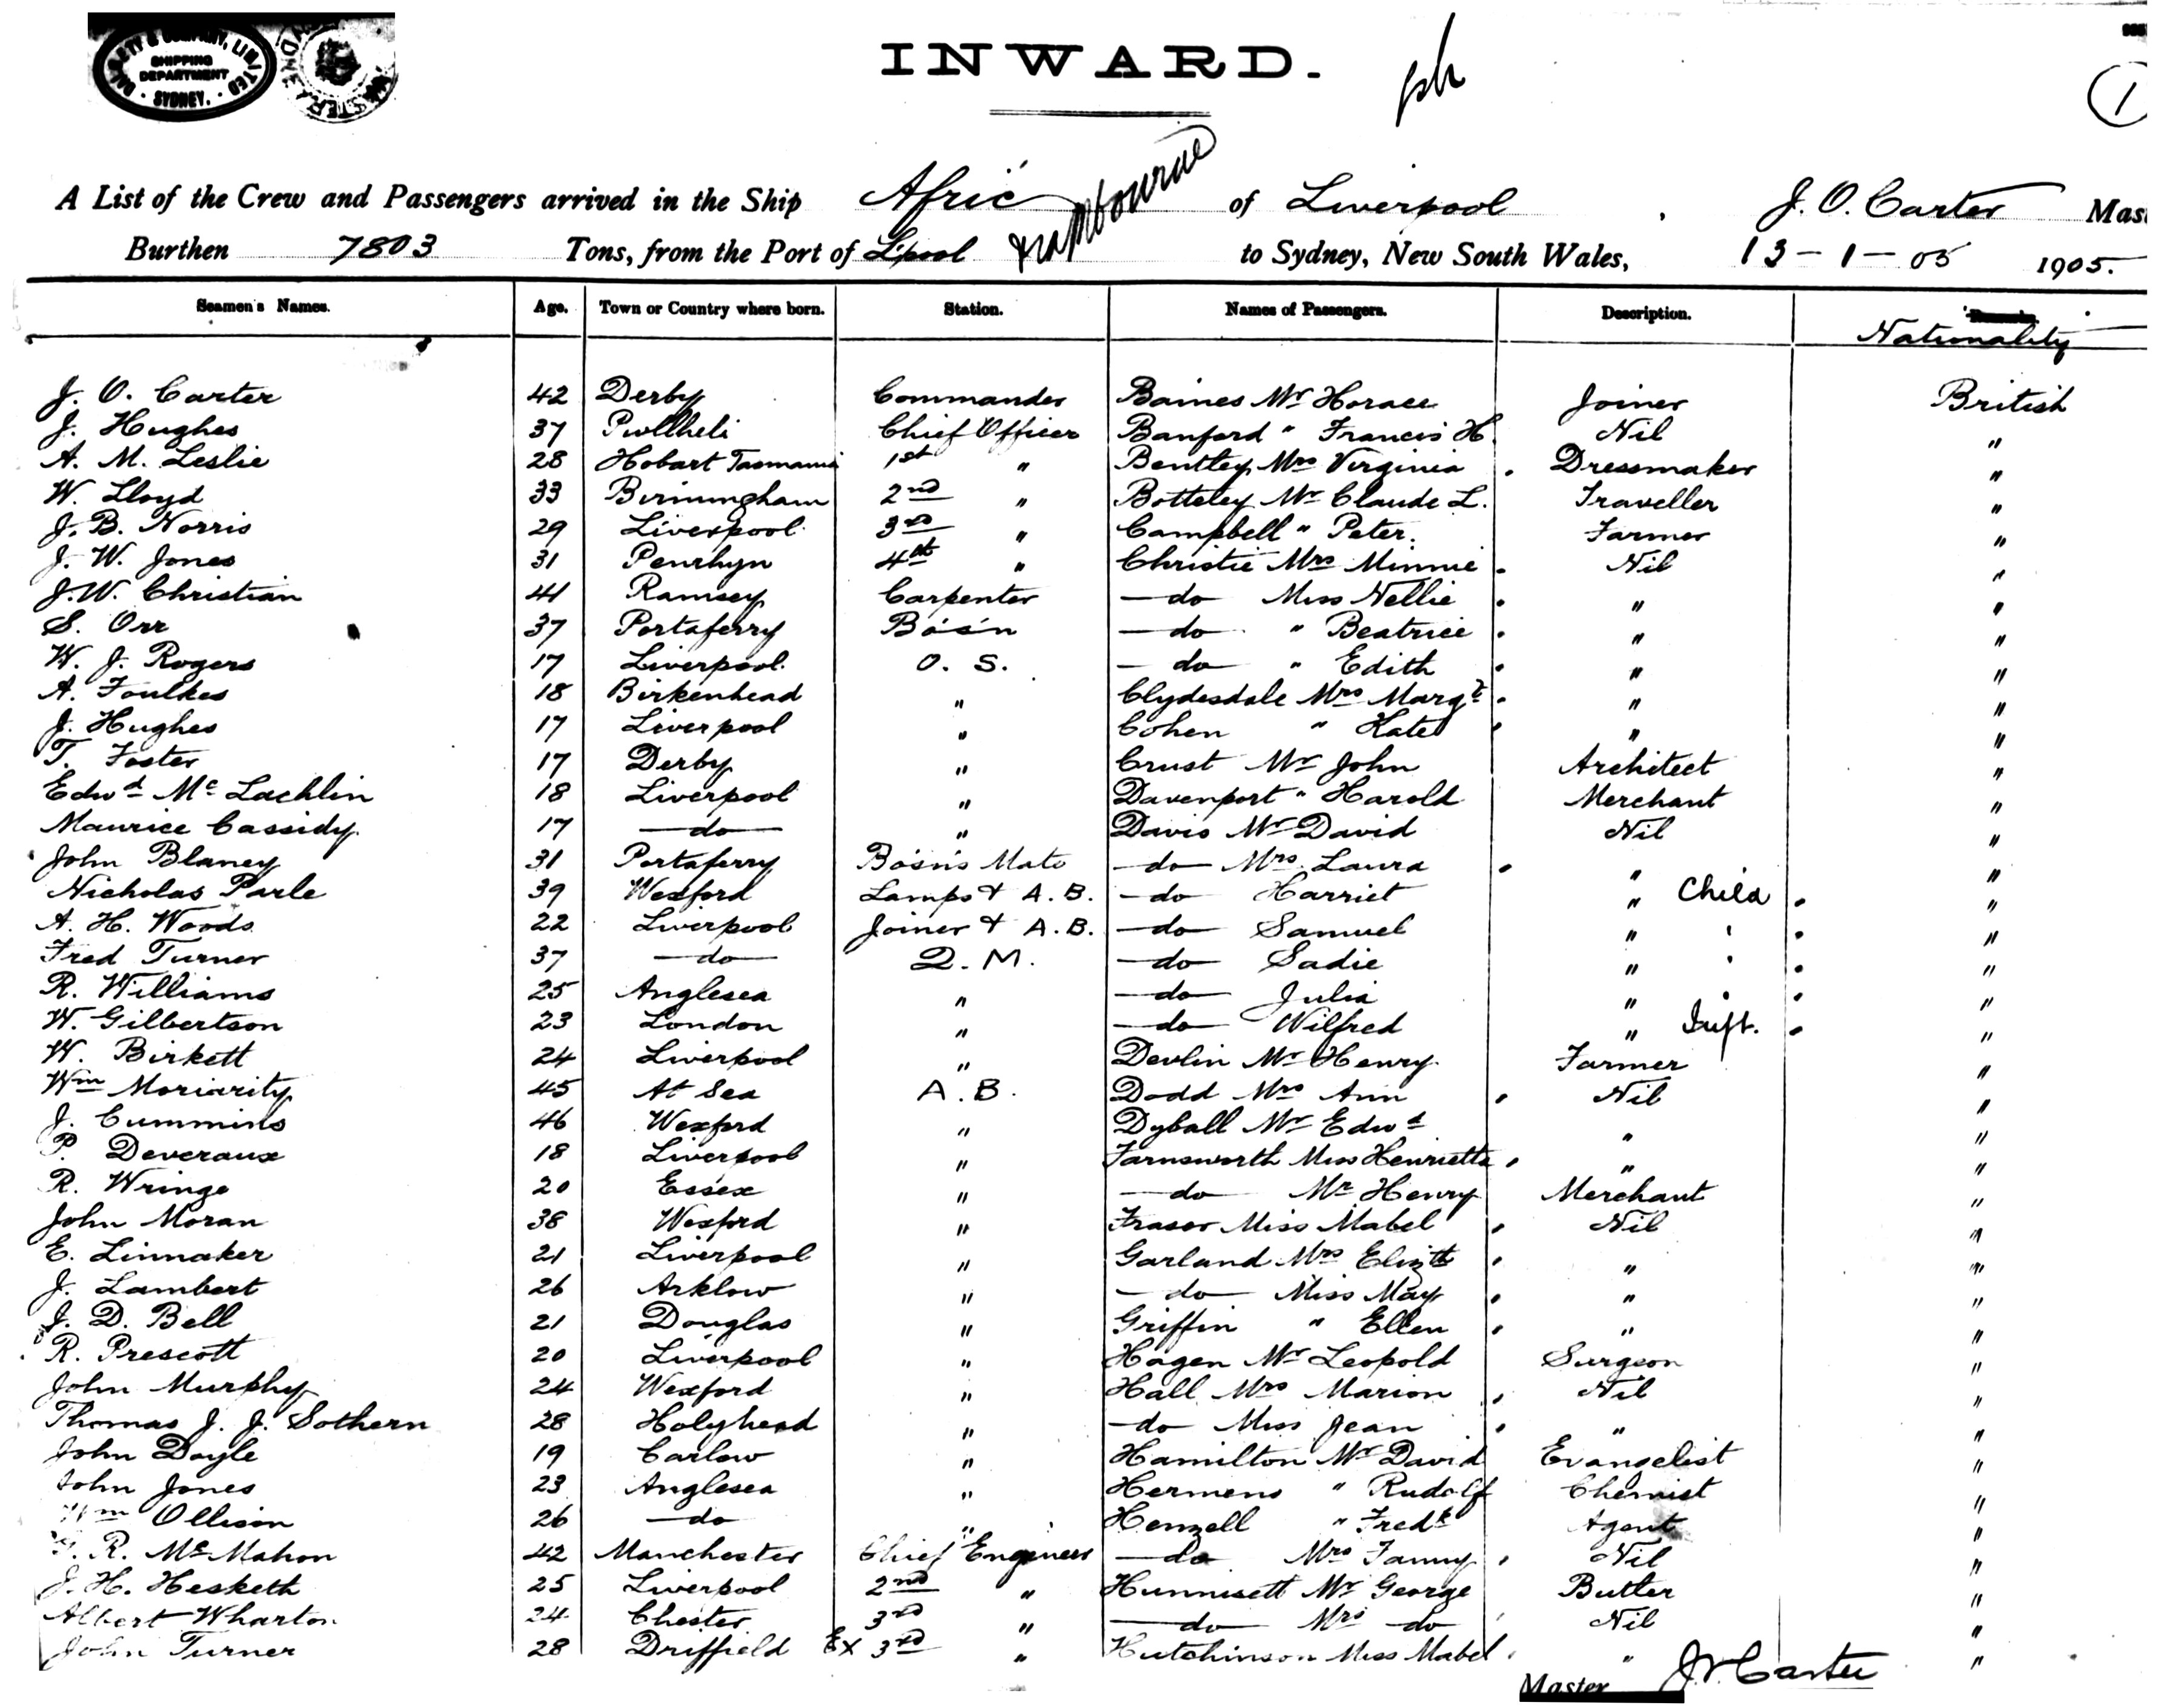 DALGETY & COMPANY, LIMITED
SHIPPING
DEPARTMENT
SYDNEY.
INWARD.
1
A List of the Crew and Passengers arrived in the Ship Afric of Liverpool, J. O. Carter Mas
Burthen 7803 Tons, from the Port of L'pool to Sydney, New South Wales, 13-1-05 1905.
Seamen's Names. Age. Town or Country where born. Station. Names of Passengers. Description. Nationality
J. O. Carter 42 Derby Commander Baines Mr Horace Joiner British
J. Hughes 37 Pwllheli Chief Officer Banford " Francis H. Nil "
A. M. Leslie 28 Hobart Tasmania 1st " Bentley Mrs Virginia Dressmaker "
W. Lloyd 33 Birmingham 2nd " Botteley Mr Claude L. Traveller "
J. B. Norris 29 Liverpool 3rd " Campbell " Peter. Farmer "
J. W. Jones 31 Penrhyn 4th " Christie Mrs Minnie Nil "
J. W. Christian 41 Ramsey Carpenter —do Miss Nellie " "
S. Orr 37 Portaferry Bo's'n —do " Beatrice " "
W. J. Rogers 17 Liverpool O. S. —do " Edith " "
A. Foulkes 18 Birkenhead " Clydesdale Mrs Margt " "
J. Hughes 17 Liverpool " Cohen " Kate " "
T. Foster 17 Derby " Crust Mr John Architect "
Edwd Mc Lachlin 18 Liverpool " Davenport " Harold Merchant "
Maurice Cassidy. 17 —do— " Davis Mr David Nil "
John Blaney 31 Portaferry Bo's'n's Mate —do— Mrs Laura " "
Nicholas Parle 39 Wexford Lamps & A.B. —do— Harriet " Child "
A. H. Woods 22 Liverpool Joiner & A.B. —do— Samuel " ' "
Fred Turner 37 —do— Q.M. —do— Sadie " ' "
R. Williams 25 Anglesea " —do— Julia " ' "
W. Gilbertson 23 London " —do— Wilfred " Inft. "
W. Birkett 24 Liverpool " Devlin Mr Henry Farmer "
Wm Moriarity 45 At Sea A.B. Dodd Mrs Ann Nil "
J. Cummins 46 Wexford " Dyball Mr Edwd " "
P. Deveraux 18 Liverpool " Farnsworth Miss Henrietta " "
R. Wringe 20 Essex " —do— Mr Henry Merchant "
John Moran 38 Wexford " Fraser Miss Mabel Nil "
E. Linnaker 21 Liverpool " Garland Mrs Elizth " "
J. Lambert 26 Arklow " —do— Miss May " "
J. D. Bell 21 Douglas " Griffin " Ellen " "
R. Prescott 20 Liverpool " Hagen Mr Leopold Surgeon "
John Murphy 24 Wexford " Hall Mrs Marion Nil "
Thomas J. J. Sothern 28 Holyhead " —do Miss Jean " "
John Doyle 19 Carlow " Hamilton Mr David Evangelist "
John Jones 23 Anglesea " Hermens " Rudolf Chemist "
Wm Ollison 26 —do " Henzell " Fredk Agent "
R. McMahon 42 Manchester Chief Engineer —do Mrs Fanny Nil "
J. H. Hesketh 25 Liverpool 2nd " Hunnisett Mr George Butler "
Albert Wharton 24 Chester 3rd " —do— Mrs do Nil "
John Turner 28 Driffield Ex 3rd " Hutchinson Miss Mabel " "
Master J. O. Carter